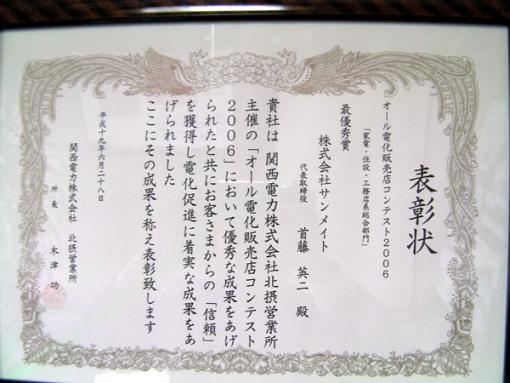 表彰状
オール電化販売店コンテスト2006
「家電・住設・工務店系総合部門」
最優秀賞
株式会社サンメイト
代表取締役 首藤 英二 殿
貴社は 関西電力株式会社北摂営業所
主催の「オール電化販売店コンテスト
2006」において優秀な成果をあげ
られたと共にお客さまからの「信頼」
を獲得し電化促進に着実な成果をあ
げられました
ここにその成果を称え表彰致します
平成十九年六月二十八日
関西電力株式会社 北摂営業所
所長 木津 功